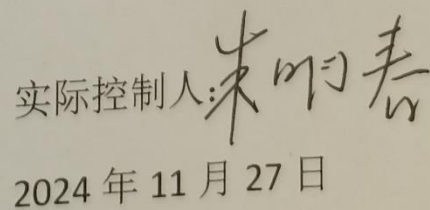 实际控制人:朱明春
2024 年 11 月 27 日